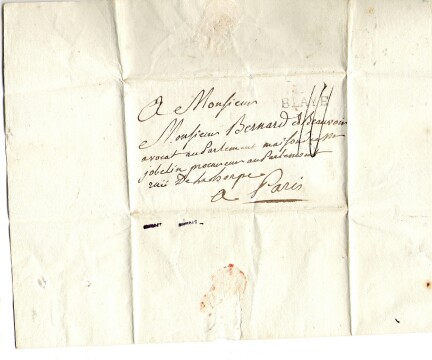 A Monsieur
BLAYE
Monsieur Bernard de Beauvoir
avocat au Parlement maison de Mr
jobelin procureur au Parlement
rue De la harpe
a Paris